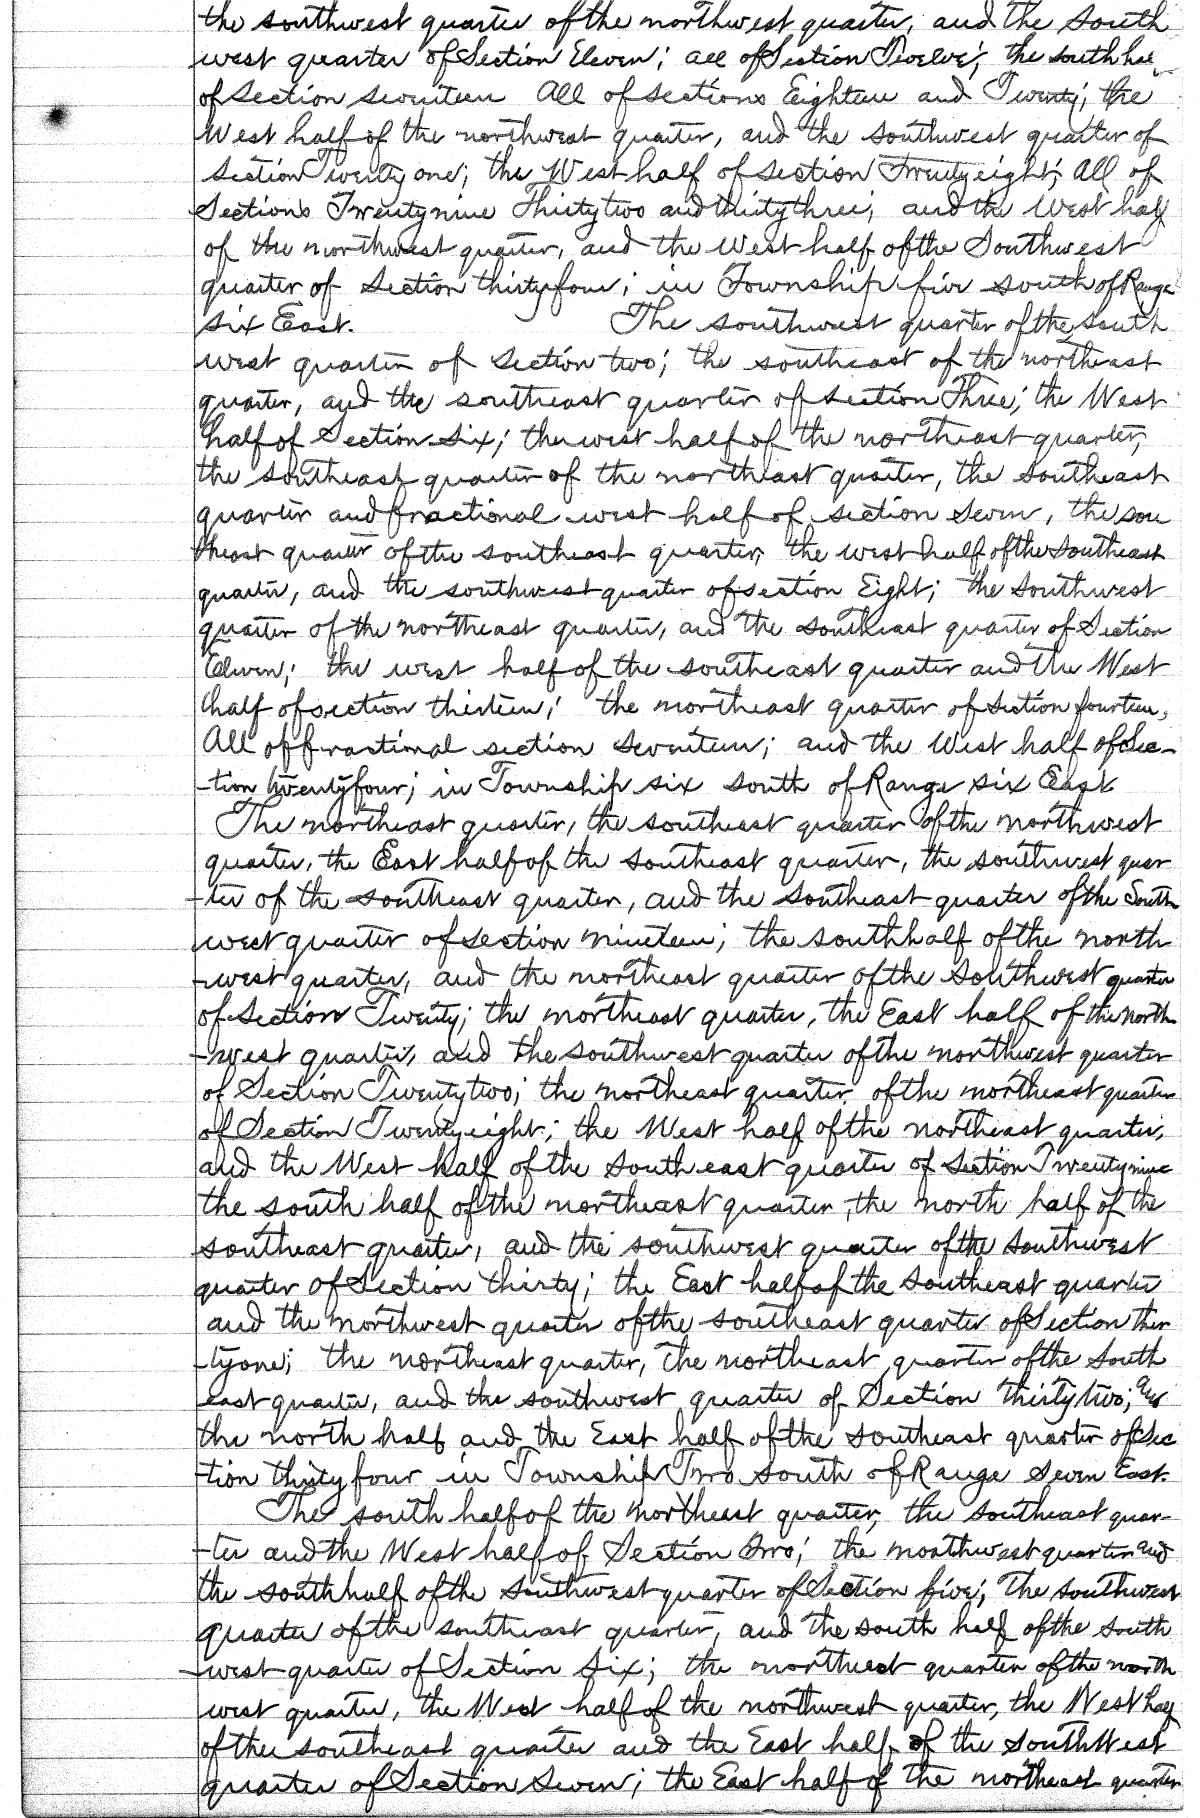 the southwest quarter of the northwest quarter, and the South
west quarter of Section Eleven; all of Section Twelve; the south half
of section seventeen All of sections Eighteen and Twenty; the
West half of the northwest quarter, and the southwest quarter of
section Twenty one; the West half of section Twenty eight; all of
Sections Twenty nine Thirty two and thirty three; and the West half
of the northwest quarter, and the West half of the Southwest
quarter of Section thirty four; in Township five south of Range
six East. The southwest quarter of the South
west quarter of Section two; the southeast of the northeast
quarter, and the southeast quarter of section Three; the West
half of Section six; the west half of the northeast quarter,
the southeast quarter of the northeast quarter, the southeast
quarter and fractional west half of section Seven, the sou
theast quarter of the southeast quarter, the west half of the Southeast
quarter, and the southwest quarter of section Eight; the Southwest
quarter of the northeast quarter, and the southeast quarter of Section
Eleven; the west half of the southeast quarter and the West
half of section thirteen; the northeast quarter of section fourteen,
All of fractional section seventeen; and the West half of Sec-
-tion twenty four; in Township six south of Range six East
The northeast quarter, the southeast quarter of the northwest
quarter, the East half of the southeast quarter, the southwest quar
-ter of the southeast quarter, and the southeast quarter of the South
west quarter of section nineteen; the south half of the north
-west quarter, and the northeast quarter of the Southwest quarter
of Section Twenty; the northeast quarter, the East half of the north
-west quarter, and the southwest quarter of the northwest quarter
of Section Twenty two; the northeast quarter of the northeast quarter
of Section Twenty eight; the West half of the northeast quarter,
and the West half of the Southeast quarter of Section Twenty nine
the south half of the northeast quarter, the north half of the
southeast quarter, and the southwest quarter of the Southwest
quarter of Section thirty; the East half of the Southeast quarter
and the northwest quarter of the southeast quarter of Section thir
-ty one; the northeast quarter, the northeast quarter of the South
east quarter, and the southwest quarter of Section thirty two; and
the north half and the East half of the southeast quarter of Sec
-tion thirty four in Township Two south of Range Seven East.
The south half of the northeast quarter, the southeast quar-
-ter and the West half of Section Two; the northwest quarter and
the south half of the Southwest quarter of Section five; the southwest
quarter of the southeast quarter, and the south half of the South
-west quarter of Section Six; the northeast quarter of the north
west quarter, the West half of the northwest quarter, the West half
of the southeast quarter and the East half of the SouthWest
quarter of Section Seven; the East half of the northeast quarter